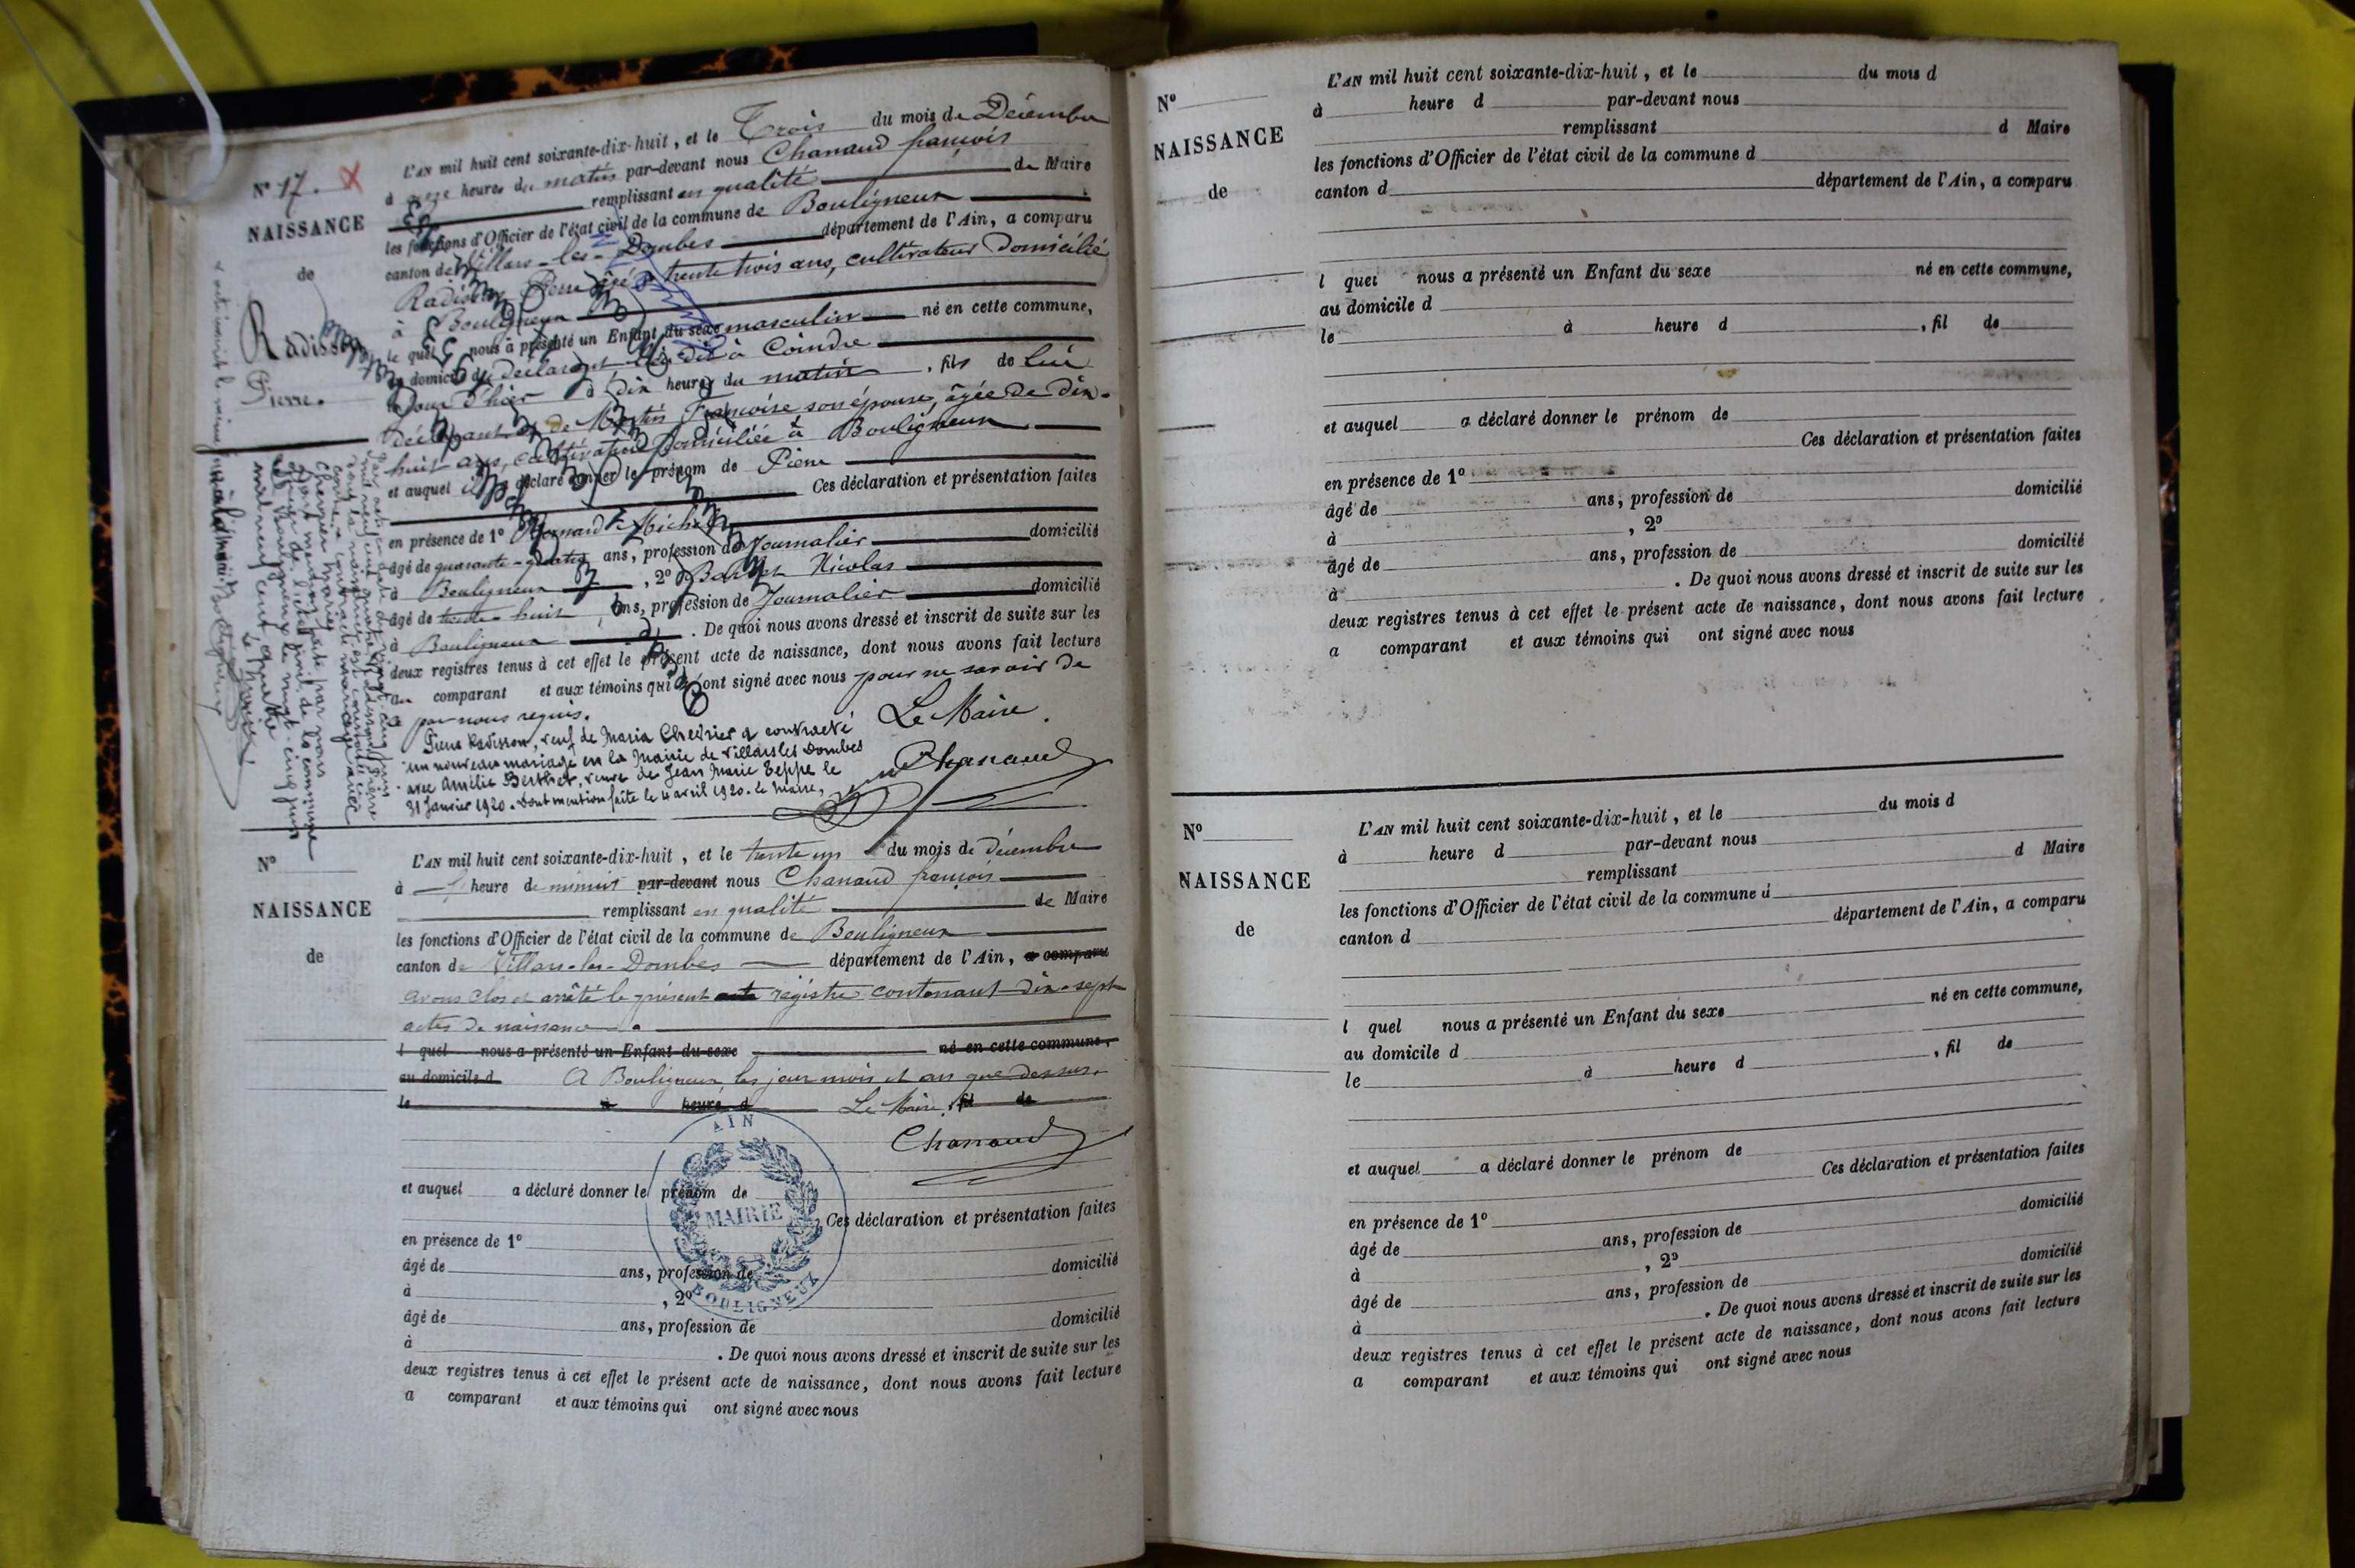 N° 17. X
NAISSANCE
de
Radisson
Pierre.
L'AN mil huit cent soixante-dix-huit, et le Trois du mois de Décembre
à onze heures du matin par-devant nous Chanaud françois
remplissant en qualité de Maire
les fonctions d'Officier de l'état civil de la commune de Bouligneux
canton de Villars-les-Dombes département de l'Ain, a comparu
Radisson Pierre âgé de trente trois ans, cultivateur Domicilié
à Bouligneux
le quel nous a présenté un Enfant du sexe masculin né en cette commune,
au domicile du déclarant lieu dit à Coindre
le jour d'hier à dix heures du matin, fils de lui
déclarant et de Martin Françoise son épouse, âgée de dix-
huit ans, cultivatrice domiciliée à Bouligneux
et auquel il a déclaré donner le prénom de Pierre
Ces déclaration et présentation faites
en présence de 1° Michel
âgé de quarante-quatre ans, profession de Journalier domicilié
à Bouligneux, 2° Nicolas
âgé de trente huit ans, profession de Journalier domicilié
à Bouligneux. De quoi nous avons dressé et inscrit de suite sur les
deux registres tenus à cet effet le présent acte de naissance, dont nous avons fait lecture
au comparant et aux témoins qui ont signé avec nous pour ne savoir de
ce par nous requis.
Le Maire.
Chanaud
Pierre Radisson, veuf de Maria Chevrier a contracté
un nouveau mariage en la Mairie de Villars les Dombes
avec Amélie Berthet, veuve de Jean Marie Teppe le
31 Janvier 1920. Dont mention faite le 4 avril 1920. Le Maire,
N°
NAISSANCE
de
L'AN mil huit cent soixante-dix-huit, et le trente un du mois de décembre
à heure de minuit par-devant nous Chanaud françois
remplissant en qualité de Maire
les fonctions d'Officier de l'état civil de la commune de Bouligneux
canton de Villars-les-Dombes département de l'Ain, a comparu
avons clos et arrêté le présent acte registre contenant dix-sept
actes de naissance.
l quel nous a présenté un Enfant du sexe né en cette commune,
au domicile d A Bouligneux, les jour mois et an que dessus.
le à heure d Le Maire, fil de
Chanaud
AIN
MAIRIE
BOULIGNEUX
et auquel a déclaré donner le prénom de
Ces déclaration et présentation faites
en présence de 1°
âgé de ans, profession de domicilié
à , 2°
âgé de ans, profession de domicilié
à . De quoi nous avons dressé et inscrit de suite sur les
deux registres tenus à cet effet le présent acte de naissance, dont nous avons fait lecture
a comparant et aux témoins qui ont signé avec nous
N°
NAISSANCE
de
L'AN mil huit cent soixante-dix-huit, et le du mois d
à heure d par-devant nous
remplissant d Maire
les fonctions d'Officier de l'état civil de la commune d
canton d département de l'Ain, a comparu
l quel nous a présenté un Enfant du sexe né en cette commune,
au domicile d
le à heure d , fil de
et auquel a déclaré donner le prénom de
Ces déclaration et présentation faites
en présence de 1°
âgé de ans, profession de domicilié
à , 2°
âgé de ans, profession de domicilié
à . De quoi nous avons dressé et inscrit de suite sur les
deux registres tenus à cet effet le présent acte de naissance, dont nous avons fait lecture
a comparant et aux témoins qui ont signé avec nous
N°
NAISSANCE
de
L'AN mil huit cent soixante-dix-huit, et le du mois d
à heure d par-devant nous
remplissant d Maire
les fonctions d'Officier de l'état civil de la commune d
canton d département de l'Ain, a comparu
l quel nous a présenté un Enfant du sexe né en cette commune,
au domicile d
le à heure d , fil de
et auquel a déclaré donner le prénom de
Ces déclaration et présentation faites
en présence de 1°
âgé de ans, profession de domicilié
à , 2°
âgé de ans, profession de domicilié
à . De quoi nous avons dressé et inscrit de suite sur les
deux registres tenus à cet effet le présent acte de naissance, dont nous avons fait lecture
a comparant et aux témoins qui ont signé avec nous